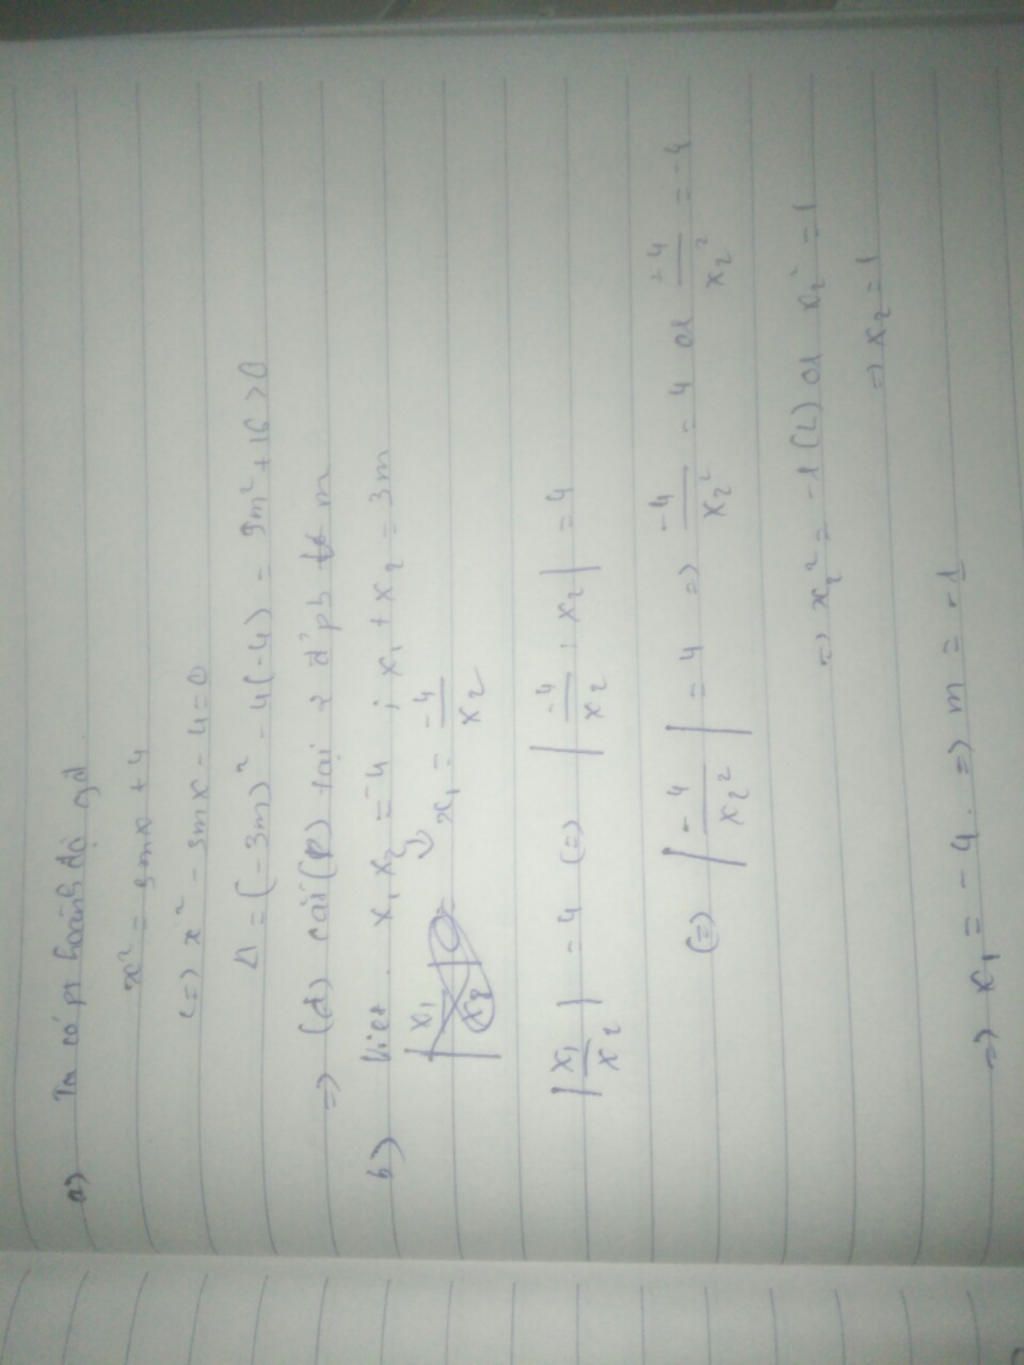 a) Ta có pt hoành độ gđ
x² = 3mx + 4
(=) x² - 3mx - 4 = 0
Δ = (-3m)² - 4(-4) = 9m² + 16 > 0
=> (d) cắt (P) tại 2 đ' pb m
b) Viet. x₁x₂ = -4 ; x₁ + x₂ = 3m
x₁ = -4/x₂
|x₁/x₂| = 4 (=) |-4/x₂ : x₂| = 4
(=) |-4/x₂²| = 4 => -4/x₂² = 4 or -4/x₂² = -4
=> x₂² = -1 (L) or x₂² = 1
=> x₂ = 1
=> x₁ = -4. => m = -1